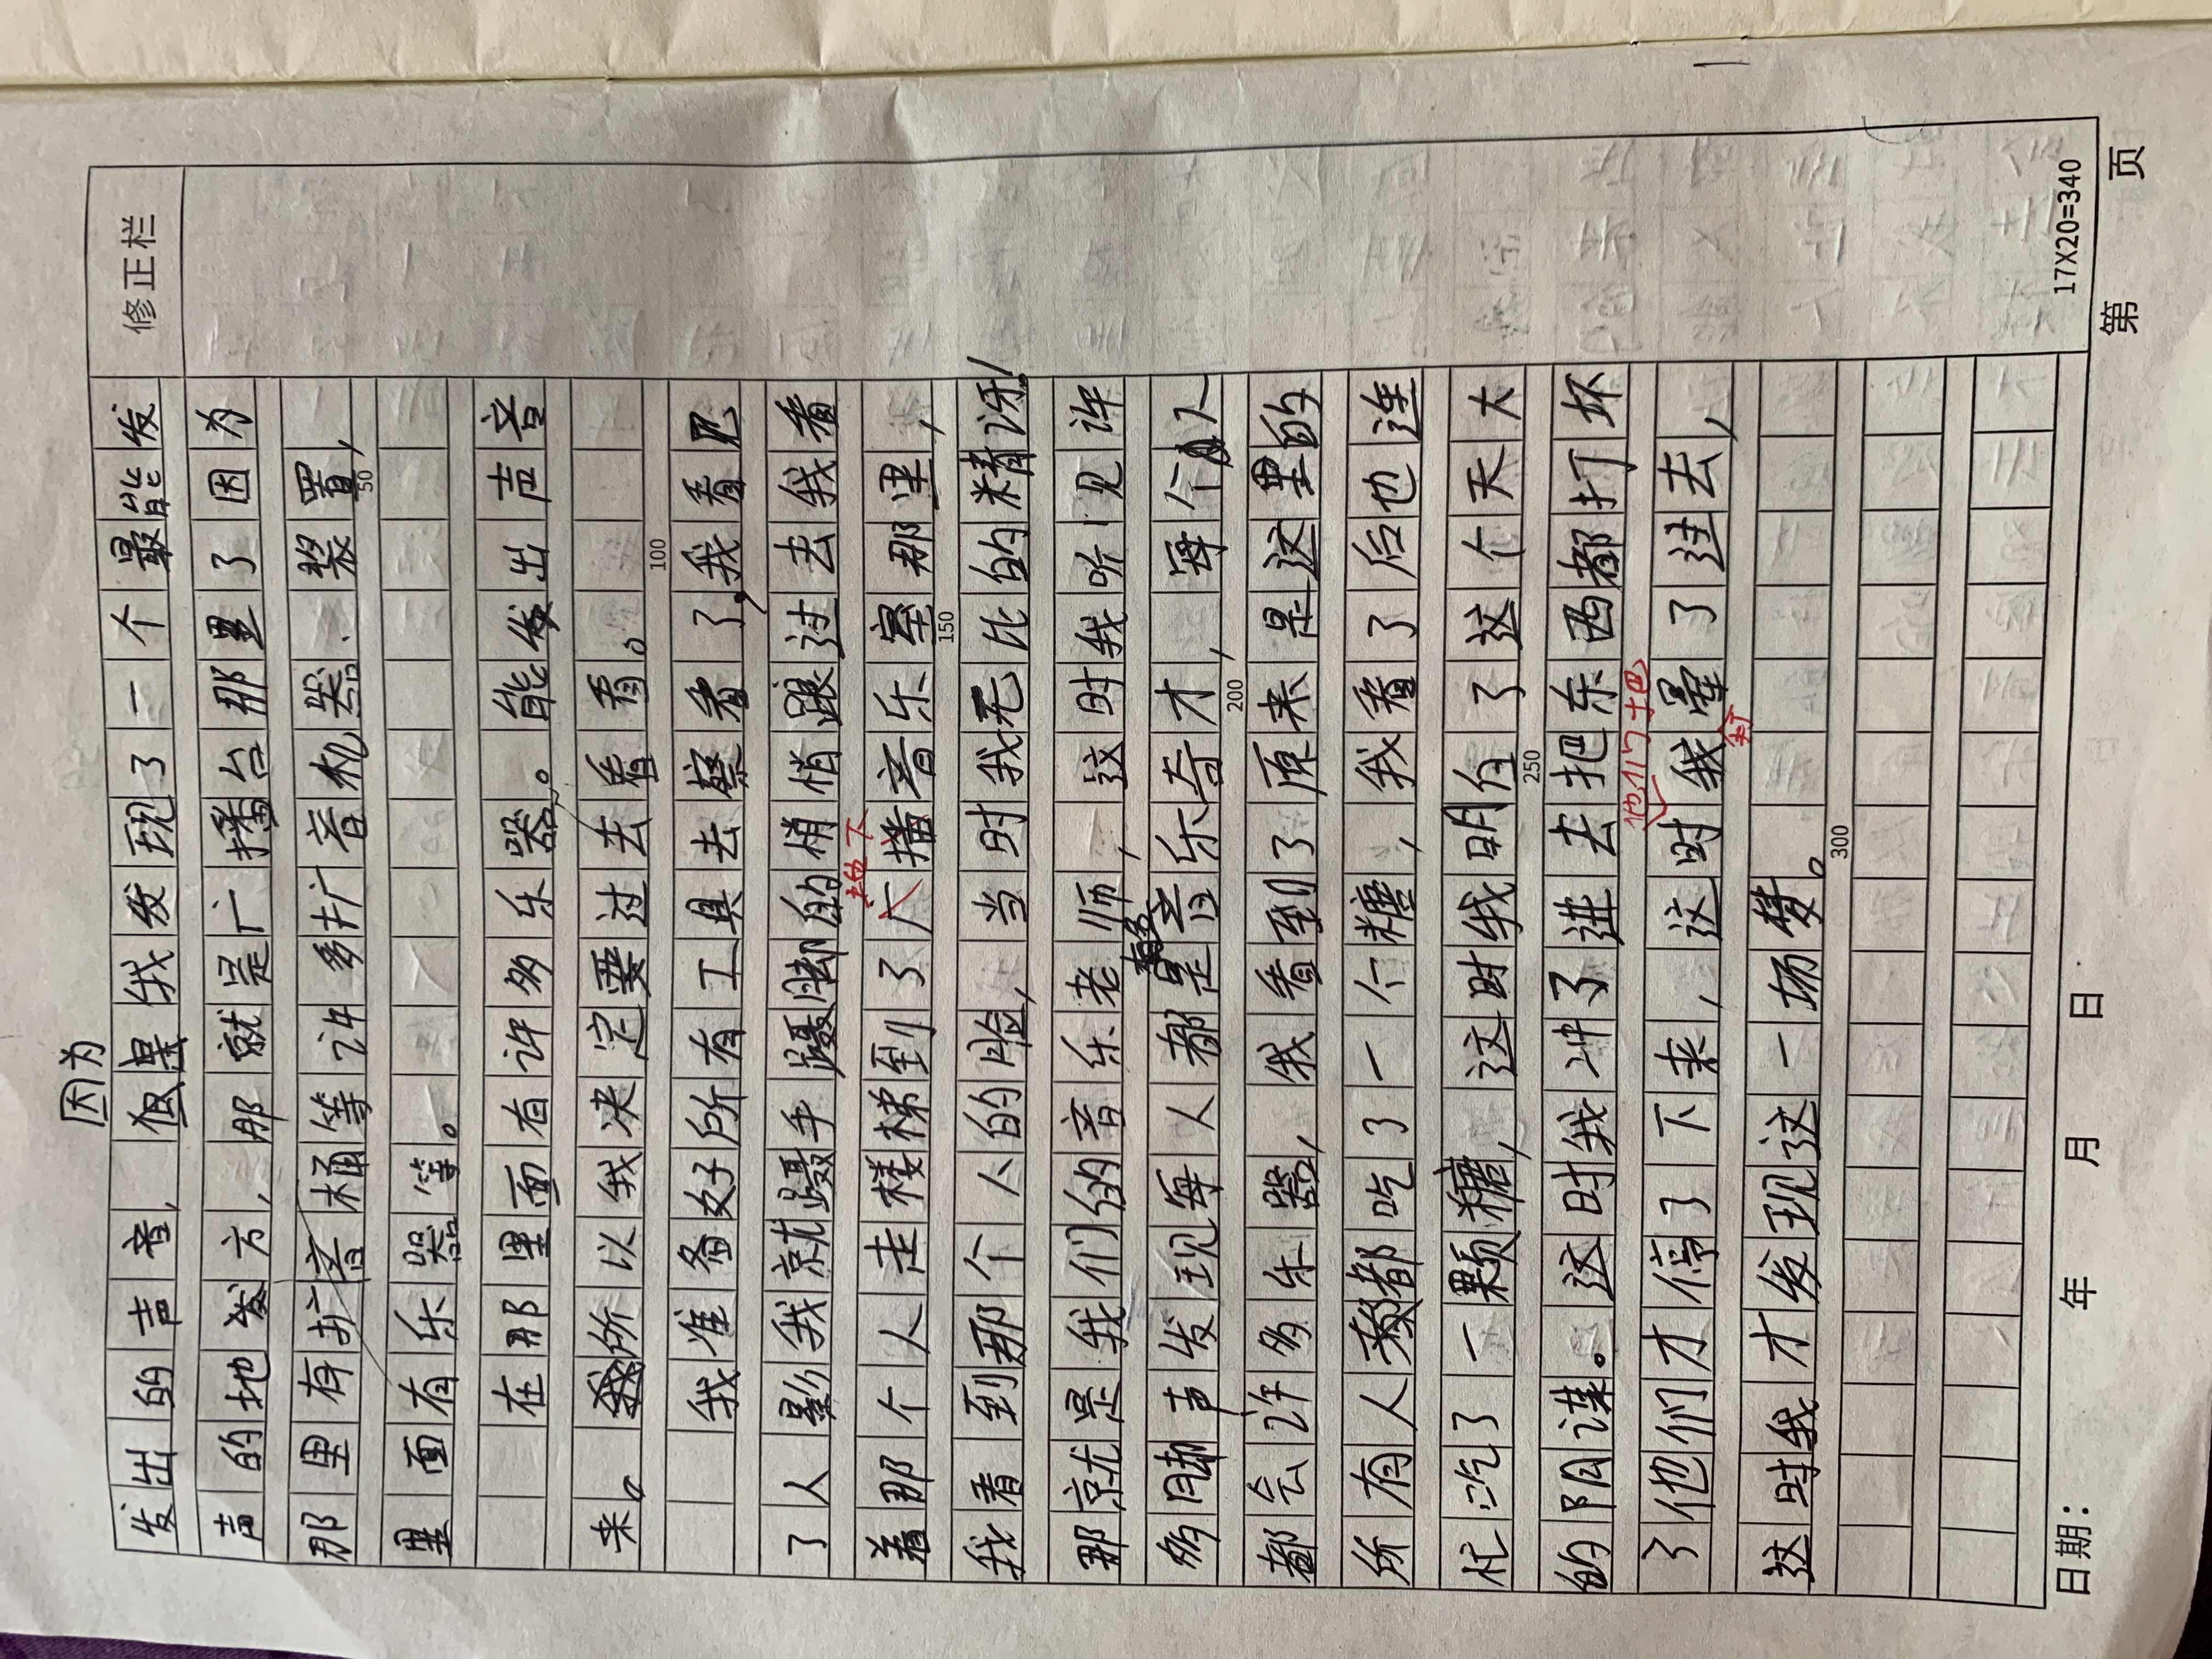 修正栏
因为
发出的声音，但是我发现了一个最能发
声的地发方，那就是广播台那里了因为
那里有扩音桶等许多扩音机器、装置，
50
里面有乐器等。
在那里面有许多乐器。能发出声音
来。所以我决定要过去看看。
100
我准备好所有工具去察看了，我看见
了人影我就蹑手蹑脚的悄悄跟过去我看
拖下
着那个人走楼梯到了广播音乐室那里，
150
我看到那个人的脸，当时我无比的精讶！
那就是我们的音乐老师，这时我听见许
多脚声发现每人都是音乐奇才，每个人
200
都会许多乐器，我看到了原来是这里的
所有人都吃了一个糖，我看了后也连
忙吃了一颗糖，这时我明白了这个天大
250
的阴谋。这时我冲了进去把东西都打坏
他们才巴
了他们才停了下来，这时我晕了过去，
这时我才发现这一场梦。
300
17X20=340
日期： 年 月 日 第 页